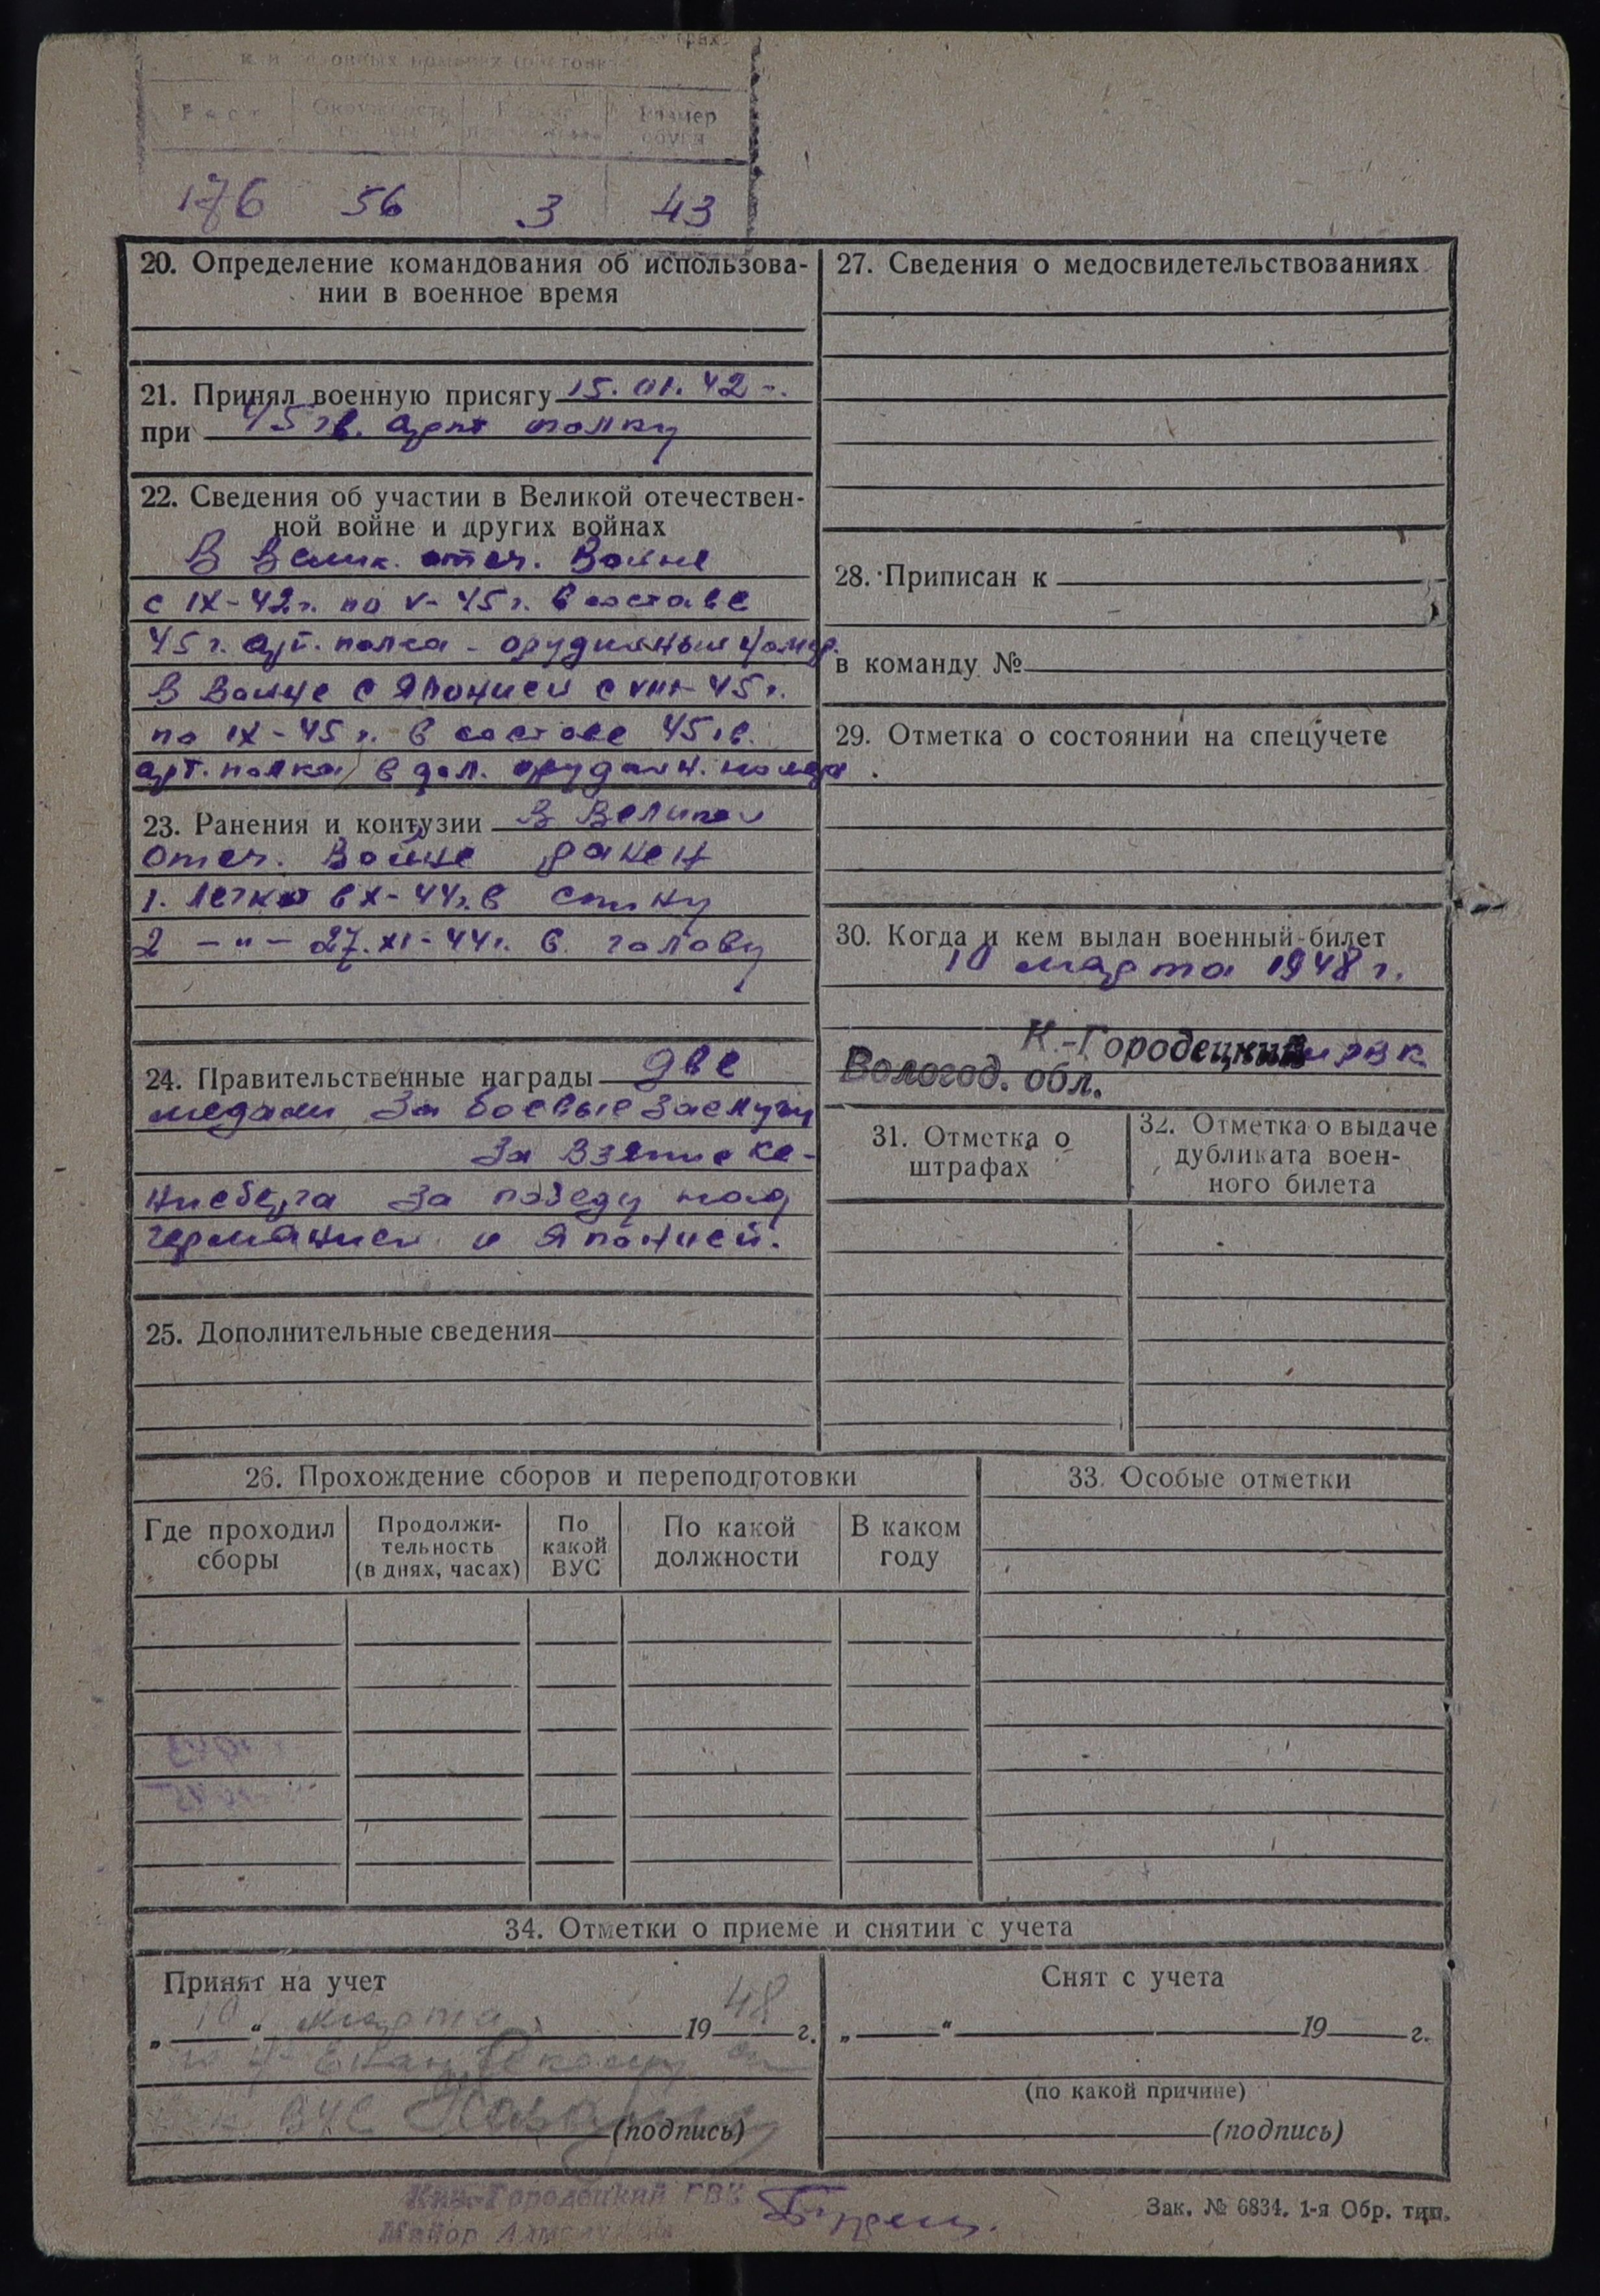 Рост Окружность Размер
обуви
176 56 3 43
20. Определение командования об использова-
нии в военное время
21. Принял военную присягу 15.01.42 г.
при 45 гв. арт полку
22. Сведения об участии в Великой отечествен-
ной войне и других войнах
В Велик. отеч. Войне
с IX-42г. по V-45г. в составе
45 г. арт. полка - орудийный номер.
В Войне с Японией с VIII-45г.
по IX-45г. в составе 45 гв.
арт. полка в дол. орудийн. номера
23. Ранения и контузии В Великой
отеч. Войне ранен
1. легко в X-44г. в спину
2 -"- 27.XI-44г. в голову
24. Правительственные награды две
медали За боевые заслуги
За Взятие Ке-
нисберга За победу над
германией и Японией.
25. Дополнительные сведения
27. Сведения о медосвидетельствованиях
28. Приписан к
в команду №
29. Отметка о состоянии на спецучете
30. Когда и кем выдан военный билет
10 марта 1948 г.
К.-Городецкий РВК
Вологод. обл.
31. Отметка о
штрафах
32. Отметка о выдаче
дубликата воен-
ного билета
26. Прохождение сборов и переподготовки
Где проходил
сборы
Продолжи-
тельность
(в днях, часах)
По
какой
ВУС
По какой
должности
В каком
году
33. Особые отметки
34. Отметки о приеме и снятии с учета
Принят на учет
„ 10 “ марта 1948 г.
ВУС
(подпись)
Снят с учета
„ “ 19 г.
(по какой причине)
(подпись)
Городецкий РВК
Майор
Зак. № 6834. 1-я Обр. тип.